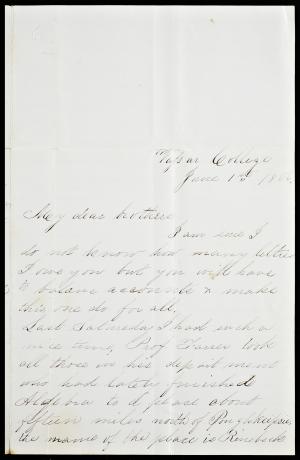 Vassar College
June 1st 186
My dear brother
I am sure I
do not know how many letters
I owe you but you will have
to balance accounts & make
this one do for all.
Last Saturday I had such a
nice time, Prof Farrar took
all those in his department
who had lately finished
Algebra to a place about
fifteen miles north of Poughkeepsie
the name of the place is Rinebeck